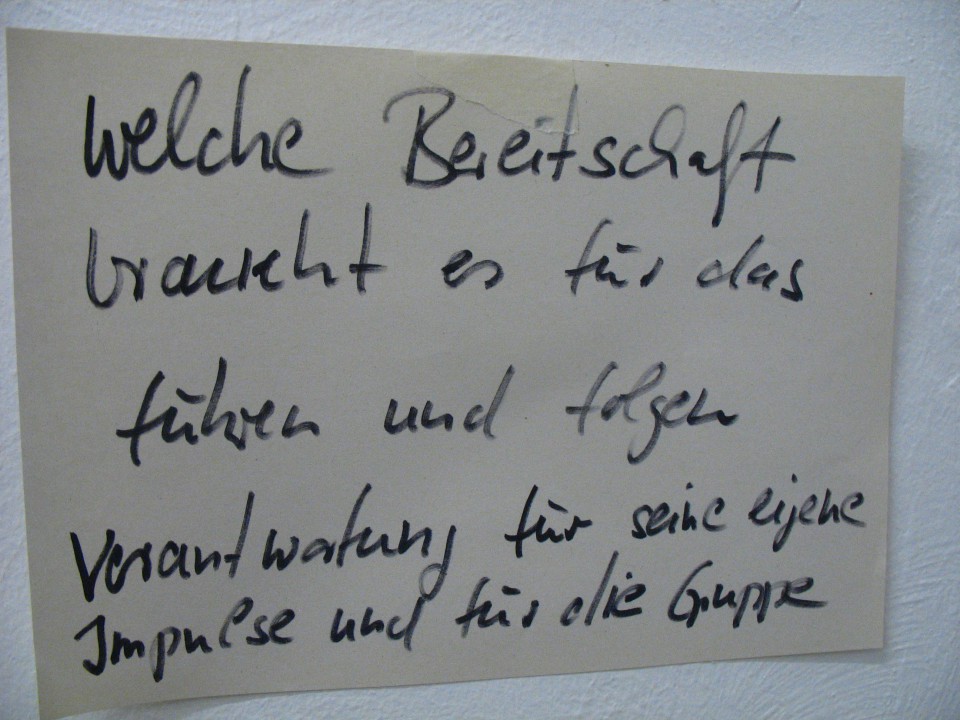 Welche Bereitschaft
braucht es für das
führen und folgen
Verantwortung für seine eigene
Impulse und für die Gruppe